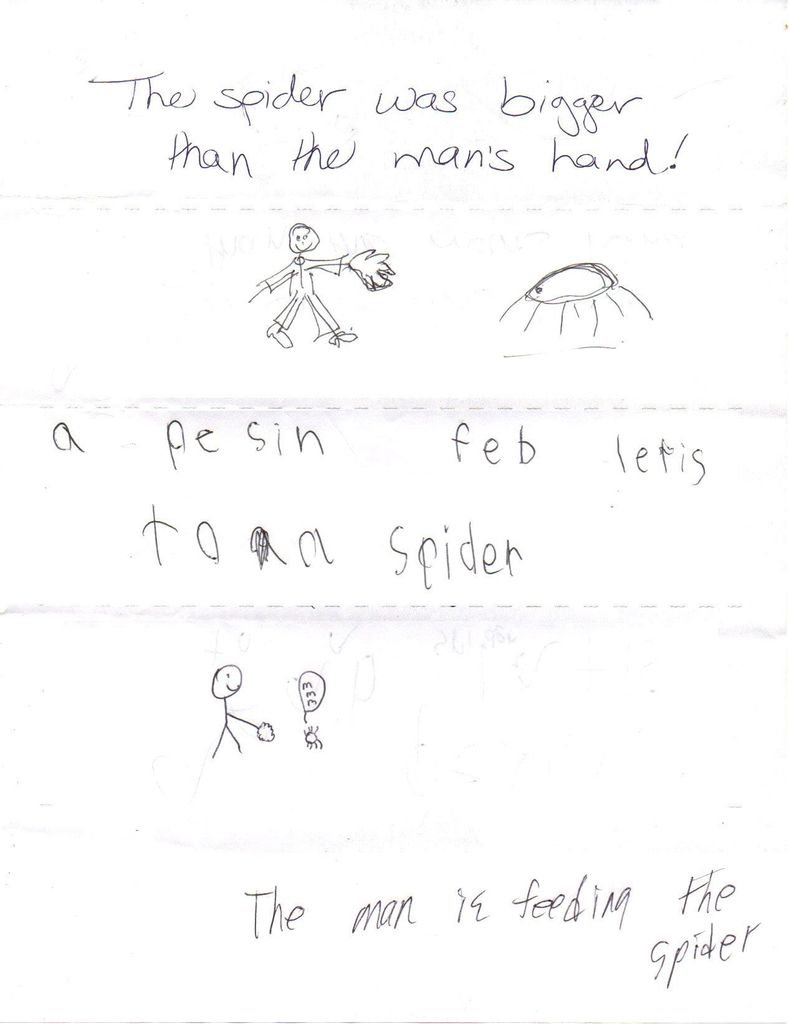 The spider was bigger
than the man's hand!
a pesin feb letis
to a spider
EEE
The man is feeding the
spider